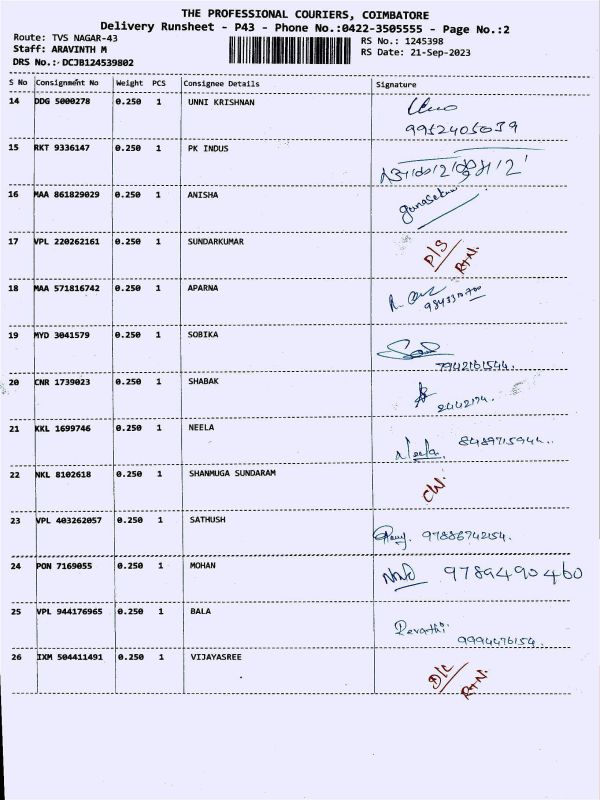 THE PROFESSIONAL COURIERS, COIMBATORE
Delivery Runsheet - P43 - Phone No.:0422-3505555 - Page No.:2
Route: TVS NAGAR-43 RS No.: 1245398
Staff: ARAVINTH M RS Date: 21-Sep-2023
DRS No.: DCJB124539802
S No Consignment No Weight PCS Consignee Details Signature
14 DDG 5000278 0.250 1 UNNI KRISHNAN
9952405039
15 RKT 9336147 0.250 1 PK INDUS
16 MAA 861829029 0.250 1 ANISHA gunasekar
17 VPL 220262161 0.250 1 SUNDARKUMAR D/S
R+N.
18 MAA 571816742 0.250 1 APARNA
19 MYD 3041579 0.250 1 SOBIKA
7942161544.
20 CNR 1739023 0.250 1 SHABAK
2442174.
21 KKL 1699746 0.250 1 NEELA 8489715944..
Neela.
22 NKL 8102618 0.250 1 SHANMUGA SUNDARAM
CW.
23 VPL 403262057 0.250 1 SATHUSH
97886742154.
24 PON 7169055 0.250 1 MOHAN 9789490460
25 VPL 944176965 0.250 1 BALA
Revathi
9994476154.
26 IXM 504411491 0.250 1 VIJAYASREE
D/C
R+N.